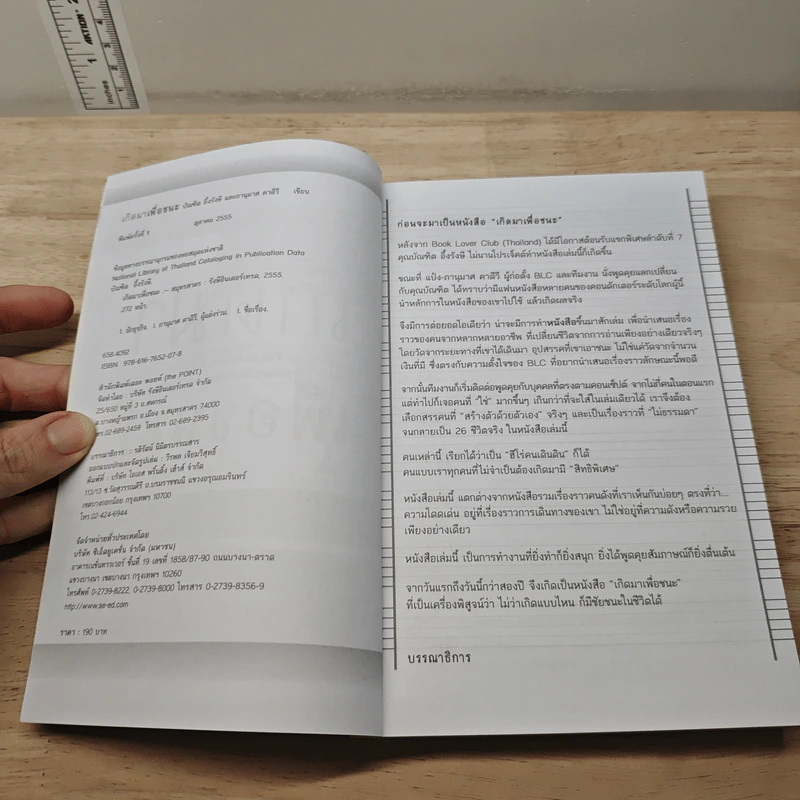 เกิดมาเพื่อชนะ บัณฑิต อึ้งรังษี และภานุมาศ คาดีวี เขียน
พิมพ์ครั้งที่ 1 ตุลาคม 2555
ข้อมูลทางบรรณานุกรมของหอสมุดแห่งชาติ
National Library of Thailand Cataloging in Publication Data
บัณฑิต อึ้งรังษี.
เกิดมาเพื่อชนะ. -- สมุทรสาคร : รังษีอินเตอร์เทรด, 2555.
272 หน้า.
1. นักธุรกิจ. I. ภานุมาศ คาดีวี, ผู้แต่งร่วม. II. ชื่อเรื่อง.
658.4092
ISBN : 978-616-7652-07-8
สำนักพิมพ์เดอะ พอยท์ (the POINT)
จัดทำโดย : บริษัท รังษีอินเตอร์เทรด จำกัด
25/650 หมู่ที่ 3 ถ.สหกรณ์
ต.บางหญ้าแพรก อ.เมือง จ.สมุทรสาคร 74000
โทร.02-689-2459 โทรสาร 02-689-2395
บรรณาธิการ : รติรัตน์ นิมิตรบรรณสาร
ออกแบบปกและจัดรูปเล่ม : วีรพล เจียมวิสุทธิ์
พิมพ์ที่ : บริษัท ไอเอส พริ้นติ้ง เฮ้าส์ จำกัด
113/13 ซ.วัดสุวรรณคีรี ถ.บรมราชชนนี แขวงอรุณอมรินทร์
เขตบางกอกน้อย กรุงเทพฯ 10700
โทร.02-424-6944
จัดจำหน่ายทั่วประเทศโดย
บริษัท ซีเอ็ดยูเคชั่น จำกัด (มหาชน)
อาคารเนชั่นทาวเวอร์ ชั้นที่ 19 เลขที่ 1858/87-90 ถนนบางนา-ตราด
แขวงบางนา เขตบางนา กรุงเทพฯ 10260
โทรศัพท์ 0-2739-8222, 0-2739-8000 โทรสาร 0-2739-8356-9
http://www.se-ed.com
ราคา : 190 บาท
ก่อนจะมาเป็นหนังสือ "เกิดมาเพื่อชนะ"
หลังจาก Book Lover Club (Thailand) ได้มีโอกาสต้อนรับแขกพิเศษลำดับที่ 7
คุณบัณฑิต อึ้งรังษี ไม่นานโปรเจ็คต์ทำหนังสือเล่มนี้ก็เกิดขึ้น
ขณะที่ แป้ง-ภานุมาศ คาดีวี ผู้ก่อตั้ง BLC และทีมงาน นั่งพูดคุยแลกเปลี่ยน
กับคุณบัณฑิต ได้ทราบว่ามีแฟนหนังสือหลายคนของคอนดักเตอร์ระดับโลกผู้นี้
นำหลักการในหนังสือของเขาไปใช้ แล้วเกิดผลจริง
จึงมีการต่อยอดไอเดียว่า น่าจะมีการทำหนังสือขึ้นมาสักเล่ม เพื่อนำเสนอเรื่อง
ราวของคนจากหลากหลายอาชีพ ที่เปลี่ยนชีวิตจากการอ่านเพียงอย่างเดียวจริงๆ
โดยวัดจากระยะทางที่เขาได้เดินมา อุปสรรคที่เขาเอาชนะ ไม่ใช่แค่วัดจากจำนวน
เงินที่มี ซึ่งตรงกับความตั้งใจของ BLC ที่อยากนำเสนอเรื่องราวลักษณะนี้พอดี
จากนั้นทีมงานก็เริ่มติดต่อพูดคุยกับบุคคลที่ตรงตามคอนเซ็ปต์ จากไม่กี่คนในตอนแรก
แต่ทำไปก็เจอคนที่ "ใช่" มากขึ้นๆ เกินกว่าที่จะใส่ในเล่มเดียวได้ เราจึงต้อง
เลือกสรรคนที่ "สร้างตัวด้วยตัวเอง" จริงๆ และเป็นเรื่องราวที่ "ไม่ธรรมดา"
จนกลายเป็น 26 ชีวิตจริง ในหนังสือเล่มนี้
คนเหล่านี้ เรียกได้ว่าเป็น "ฮีโร่คนเดินดิน" ก็ได้
คนแบบเราทุกคนที่ไม่จำเป็นต้องเกิดมามี "สิทธิพิเศษ"
หนังสือเล่มนี้ แตกต่างจากหนังสือรวมเรื่องราวคนดังที่เราเห็นกันบ่อยๆ ตรงที่ว่า...
ความโดดเด่น อยู่ที่เรื่องราวการเดินทางของเขา ไม่ใช่อยู่ที่ความดังหรือความรวย
เพียงอย่างเดียว
หนังสือเล่มนี้ เป็นการทำงานที่ยิ่งทำก็ยิ่งสนุก ยิ่งได้พูดคุยสัมภาษณ์ก็ยิ่งตื่นเต้น
จากวันแรกถึงวันนี้กว่าสองปี จึงเกิดเป็นหนังสือ "เกิดมาเพื่อชนะ"
ที่เป็นเครื่องพิสูจน์ว่า ไม่ว่าเกิดแบบไหน ก็มีชัยชนะในชีวิตได้
บรรณาธิการ
AKTION
inches